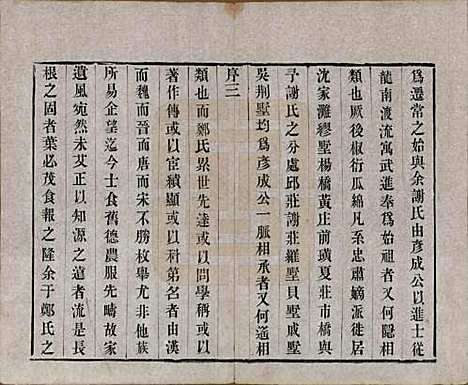 為遷常之始與余謝氏由彥成公以進士從
龍南渡流寓武進奉為始祖者又何隱相
類也厥後椒衍瓜綿凡系忠肅嫡派徙居
沈家灘繆墅楊橋黃庄前璜夏莊市橋與
予謝氏之分處邱莊謝莊羅墅貝墅戚墅
吳荆墅均為彥成公一脈相承者又何適相
序三
類也而鄭氏累世先達或以問學稱或以
著作傳或以宦績顯或以科第名者由漢
而魏而晉而唐而宋不勝枚舉尤非他族
所易企望迄今士食舊德農服先疇故家
遺風宛然未艾正以知源之遠者流是長
根之固者葉必茂食報之隆余于鄭氏之